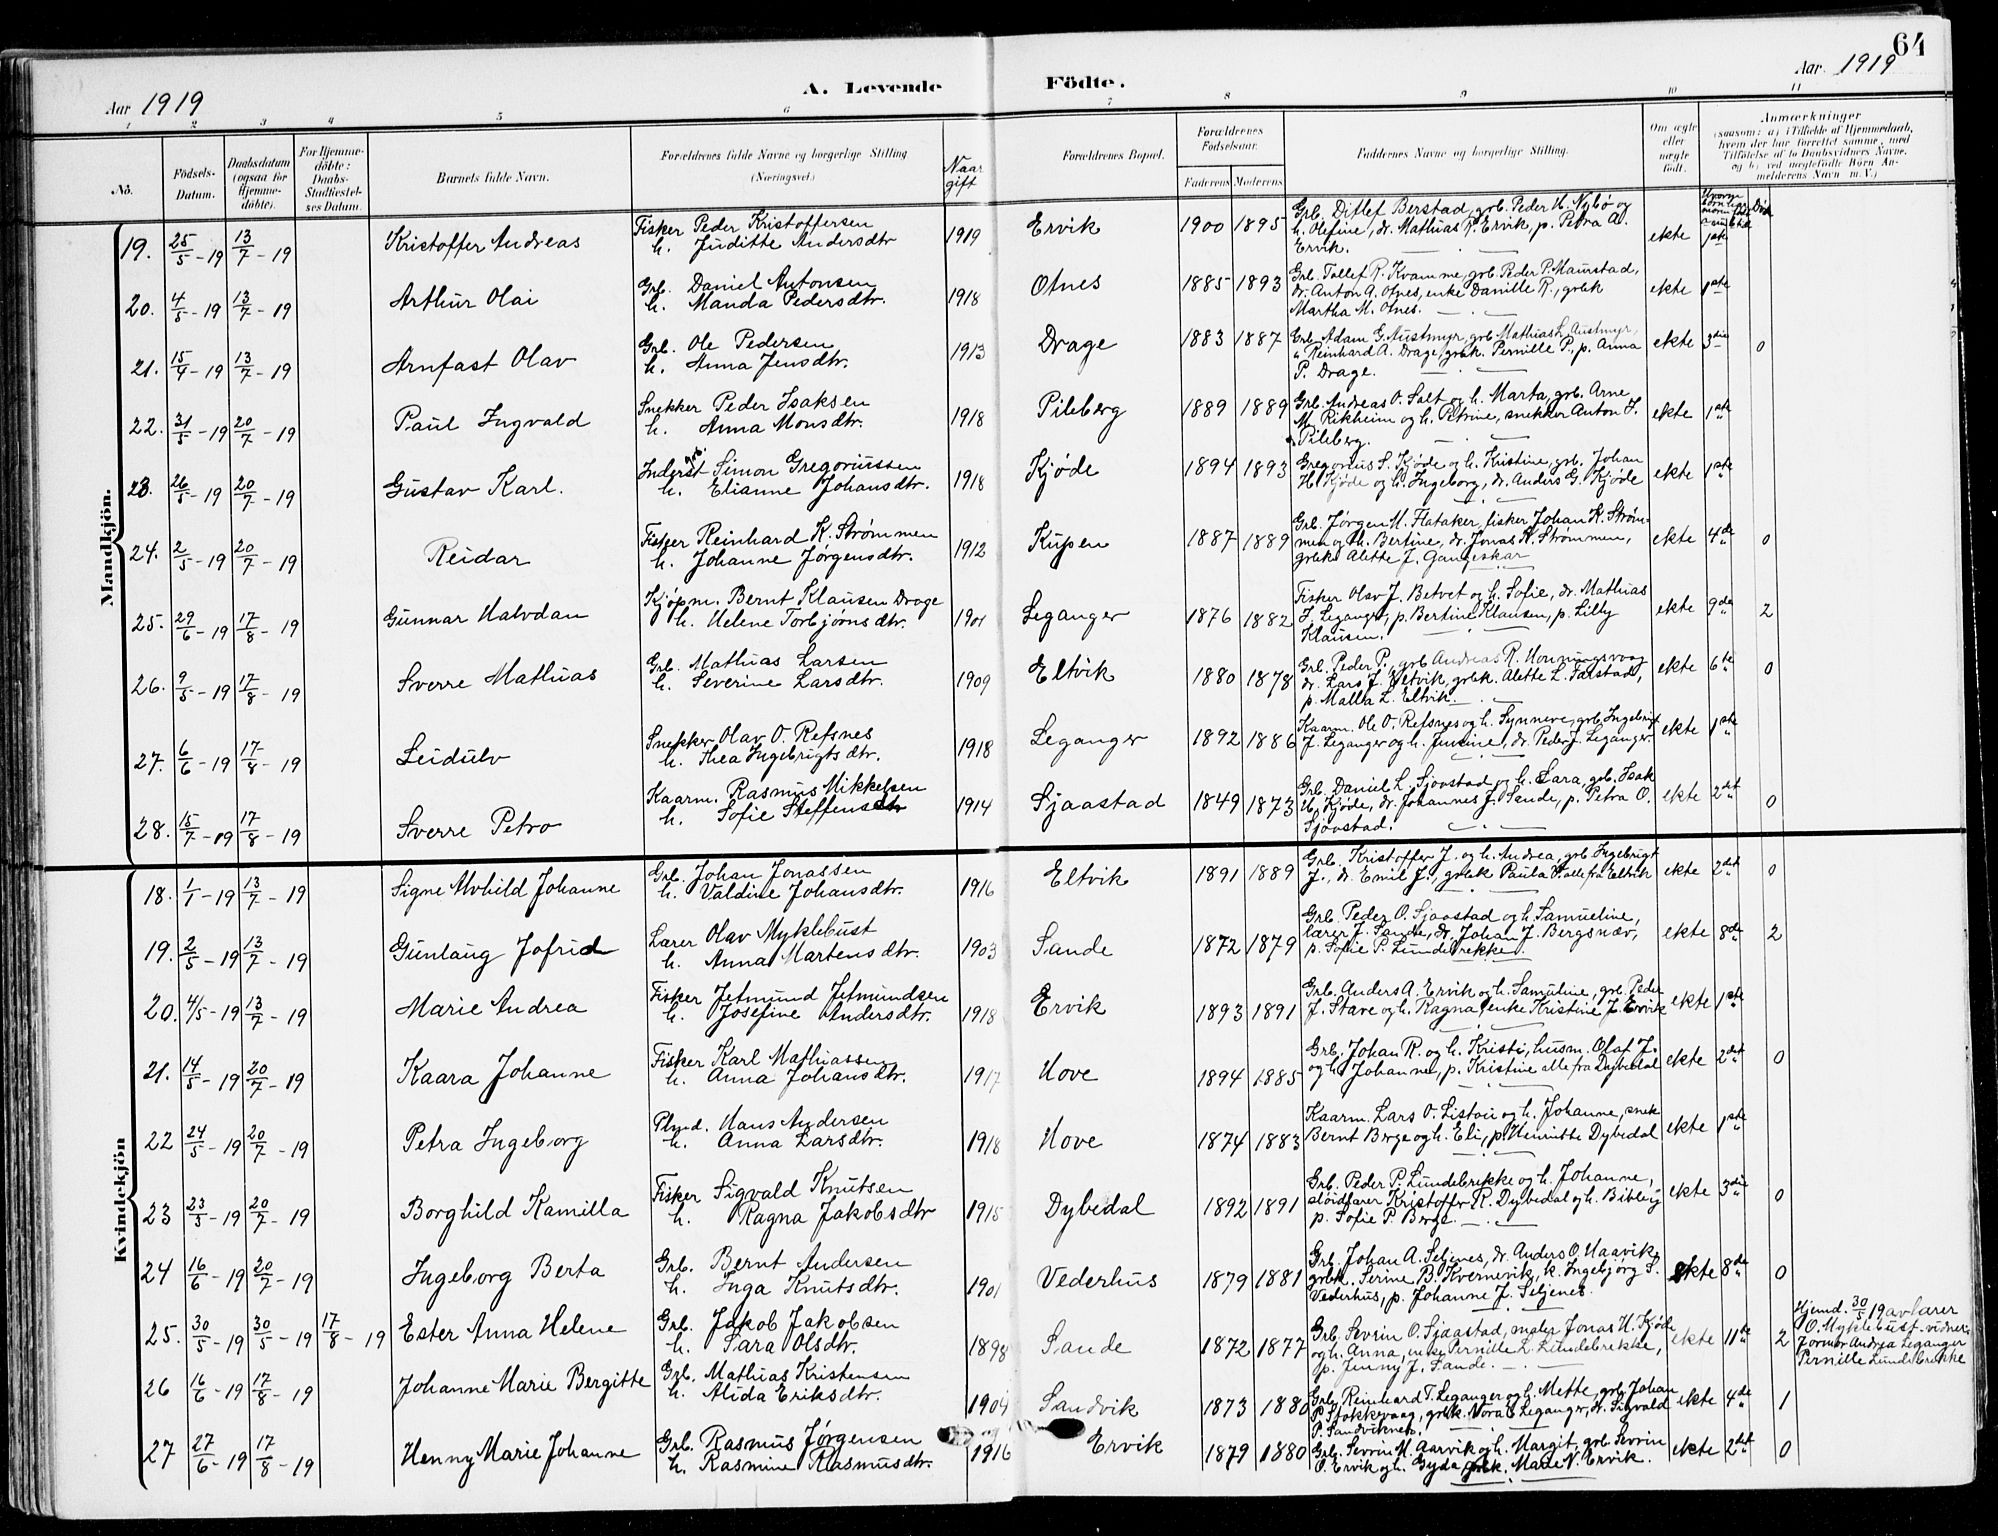 64
Aar 1919 A. Levende Födte. Aar 1919
1 2 3 4 5 6 7 8 9 10 11
No. Födsels-Datum. Daabsdatum (ogsaa for Hjemme-döbte). For Hjemme-döbte: Daabs-Stadfæstel-ses Datum. Barnets fulde Navn. Forældrenes fulde Navne og borgerlige Stilling (Næringsvei.) Naar gift Forældrenes Bopæl. Forældrenes Födselsaar. Faderens Moderens Faddernes Navne og borgerlige Stilling. Om ægte eller uægte födt. Anmærkninger (saasom: a) i Tilfælde af Hjemmedaab, hvem der har forrettet samme, med Tilföielse af to Daabsvidners Navne, og b) ved uægtefödte Börn An-melderens Navn m.V.)
Mandkjön.
19. 25/5-19 13/7-19 Kristoffer Andreas Fisker Peder Kristoffersen h. Juditte Andersdtr 1919 Ervik 1900 1895 Grb. Ditlef Berstad, grb. Peder H. Nybø og h. Olefine, dr. Mathias R. Ervik, p. Petra A. Ervik. ekte 1ste
20. 4/5-19 13/7-19 Arthur Olai Grb. Daniel Antonsen h. Manda Pedersdtr. 1918 Otnes 1885 1893 Grb. Tollef R. Kvamme, grb. Peder P. Maurstad, dr. Anton A. Otnes, enke Danille R., grbk Martha M. Otnes. ekte 1ste
21. 15/4-19 13/7-19 Arnfast Olav Grb. Ole Pedersen h. Anna Jensdtr. 1913 Drage 1883 1887 Grb. Adam G. Austmyr, grb. Mathias L. Austmyr, " Reinhard A. Drage, grbk. Pernille P., p. Anna P. Drage. ekte 3die 0
22. 31/5-19 20/7-19 Paul Ingvald Snekker Peder Isaksen h. Anna Monsdtr. 1918 Pileberg 1889 1889 Grb. Andreas O. Salt og h. Marta, grb. Arne M. Rikheim og h. Petrine, snekker Anton I. Pileberg. ekte 1ste
23. 26/5-19 20/7-19 Gustav Karl. Inderst Simon Gregoriussen h. Elianne Johansdtr. 1918 Kjøde 1894 1893 Gregorius S. Kjøde og h. Kristine, grb. Johan H. Kjøde og h. Ingeborg, dr. Anders G. Kjøde ekte 1ste
24. 2/5-19 20/7-19 Reidar Fisker Reinhard K. Strømmen h. Johanne Jørgensdtr. 1912 Kupen 1887 1889 Grb. Jørgen M. Flataker, fisker Johan K. Strøm-men og h. Bertine, dr. Jonas K. Strømmen, grbk. Alette J. Gangeskar ekte 4de 0
25. 29/6-19 17/8-19 Gunnar Halvdan Kjøpm. Bernt Klausen Drage h. Helene Torbjørnsdtr. 1901 Leganger 1876 1882 Fisker Olav J. Betvet og h. Sofie, dr. Mathias J. Leganger, p. Bertine Klausen, p. Lilly Klausen. ekte 9de 2
26. 9/5-19 17/8-19 Sverre Mathias Grb. Mathias Larsen h. Severine Larsdtr. 1909 Eltvik 1880 1878 Grb. Peder P., grb Andreas R. Honningsvaag dr. Lars J. Eltvik, grbk. Alette L. Færstad, p. Malla L. Eltvik. ekte 6te 0
27. 6/6-19 17/8-19 Leidulv Snekker Olav O. Refsnes h. Thea Ingebrigtsdtr. 1918 Leganger 1892 1886 Kaarm. Ole O. Refsnes og h. Synneve, grb. Ingebrigt J. Leganger og h. Jensine, dr. Peder J. Leganger. ekte 1ste
28. 15/7-19 17/8-19 Sverre Petro Kaarm. Rasmus Mikkelsen h. Sofie Steffensdtr 1914 Sjaastad 1849 1873 Grb. Daniel L. Sjaastad og h. Sara, grb. Isak H. Kjøde, dr. Johannes J. Sande, p. Petra O. Sjåstad. ekte 2det 0
Kvindekjön
18. 1/1-19 13/7-19 Signe Alvhild Johanne Grb. Johan Jonassen h. Valdine Johansdtr. 1916 Eltvik 1891 1889 Grb. Kristoffer J. og h. Andrea, grb Ingebrigt J., dr. Emil J., grbk Paula alle fra Eltvik ekte 2det 0
19. 2/5-19 13/7-19 Gunlaug Jofrid Lærer Olav Myklebust h. Anna Martensdtr. 1903 Sande 1872 1879 Grb. Peder O. Sjaastad og h. Samueline, lærer J. Sande, dr. Johan J. Bergsnæv, p. Sofie P. Lundebrekke. ekte 8de 2
20. 4/5-19 13/7-19 Marie Andrea Fisker Jetmund Jetmundsen h. Josefine Andersdtr. 1918 Ervik 1893 1891 Grb. Anders A. Ervik og h. Samuline, grb. Peder J. Stave og h. Ragna, enke Kristine J. Ervik ekte 1ste
21. 14/5-19 20/7-19 Kaara Johanne Fisker Karl Mathiassen h. Anna Johansdtr. 1917 Hove 1894 1885 Grb. Johan R. og h. Kristi, husm. Olaf J. og h. Johanne, p. Kristine alle fra Dybedal ekte 2det 0
22 24/5-19 20/7-19 Petra Ingeborg Hans Andersen h. Anna Larsdtr. 1918 Hove 1874 1883 Kaarm. Lars O. Listou og h. Johanne, snek Bernt Berge og h. Eli, p. Henritte Dybedal ekte 1ste
23 23/5-19 20/7-19 Borghild Kamilla Fisker Sigvald Knutsen h. Ragna Jakobsdtr 1915 Dybedal 1892 1891 Grb. Peder P. Lundebrekke og h. Johanne, sløidlærer Kristoffer R. Dybedal og h. p. Sofie P. Berge. ekte 3die 0
24 16/6-19 20/7-19 Ingeborg Berta Grb. Bernt Andersen h. Inga Knutsdtr. 1901 Vederhus 1879 1881 Grb. Johan A. Seljenes, dr. Anders O. Haavik, grbk. Serine B. Kvernevik, k. Ingebjørg S. Vederhus, p. Johanne J. Seljenes. ekte 8de 0
25. 30/5-19 30/5-19 17/8-19 Ester Anna Helene Grb. Jakob Jakobsen h. Sara Olsdtr. 1898 Sande 1872 1877 Grb. Sevrin O. Sjaastad, maler Jonas H. Kjøde og h. Anna, enke Pernille L. Lundebrekke, p. Jenny J. Sande. ekte 11te 2 Hjemd. 30/5 19 av lærer O. Myklebust - vidner: Jormor Andrea Leganger Pernille Lundebrekke
26 16/6-19 17/8-19 Johanne Marie Bergitte Grb. Mathias Kristensen h. Alida Eriksdtr. 1904 Sandvik 1873 1880 Grb. Reinhard T. Leganger og h. Mette, grb. Johan P. Stokkevaag, grbk. Nora Leganger, dr. Sigvald P. Sandviknes. ekte 4de 1
27 27/6-19 17/8-19 Henny Marie Johanne Grb. Rasmus Jørgensen h. Rasmine Rasmusdtr. 1916 Ervik 1879 1880 Grb. Sevrin M. Aarvik og h. Margit, grb. Sevrin O. Ervik og h. Gyda, grbk. Marie N. Ervik. ekte 2det 0